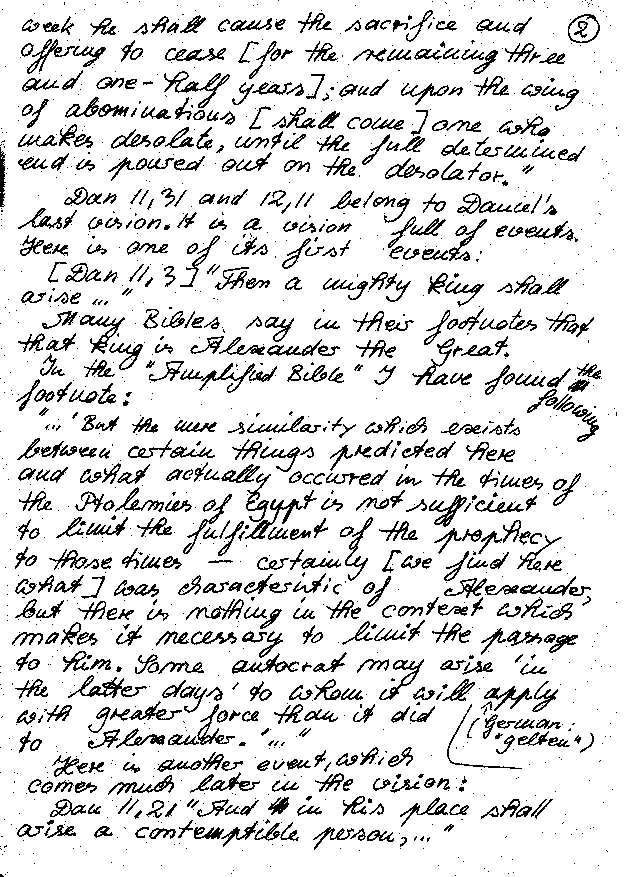 week he shall cause the sacrifice and
②
offering to cease [for the remaining three
and one-half years]; and upon the wing
of abominations [shall come] one who
makes desolate, until the full determined
end is poured out on the desolator."
Dan 11,31 and 12,11 belong to Daniel's
last vision. It is a vision full of events.
Here is one of its first events:
[Dan 11,3] "Then a mighty king shall
arise ..."
Many Bibles say in their footnotes that
that king is Alexander the Great.
In the "Amplified Bible" I have found the
following
footnote:
"...'But the mere similarity which exists
between certain things predicted here
and what actually occured in the times of
the Ptolemies of Egypt is not sufficient
to limit the fulfillment of the prophecy
to those times — certainly [we find here
what] was characteristic of Alexander,
but there is nothing in the context which
makes it necessary to limit the passage
to him. Some autocrat may arise 'in
the latter days' to whom it will apply
with greater force than it did
(German:
"gelten")
to Alexander.'..."
Here is another event, which
comes much later in the vision:
Dan 11,21 "And in his place shall
arise a contemptible person,..."